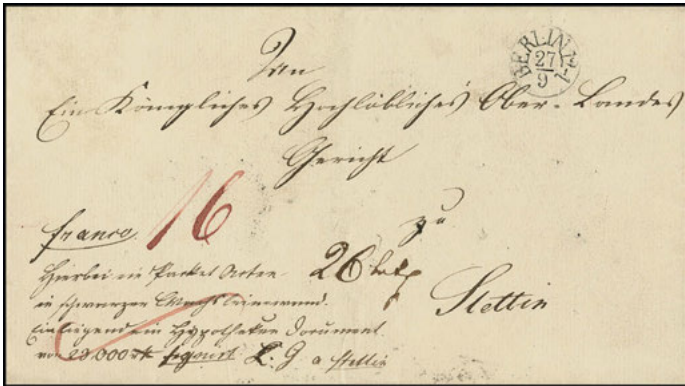 BERLIN
27
9
An
Ein Königliches Hochlöbliches Ober-Landes
Gericht
zu
Stettin
franco.
16
26
Hierbei ein Packet Acten
in schwarzer Wachsleinewand.
Einliegend ein Hypotheken Document
von signirt L. G a Stettin